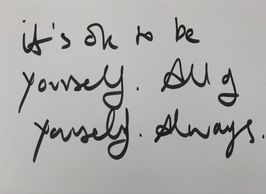 it's ok to be
yourself. All of
yourself. Always.